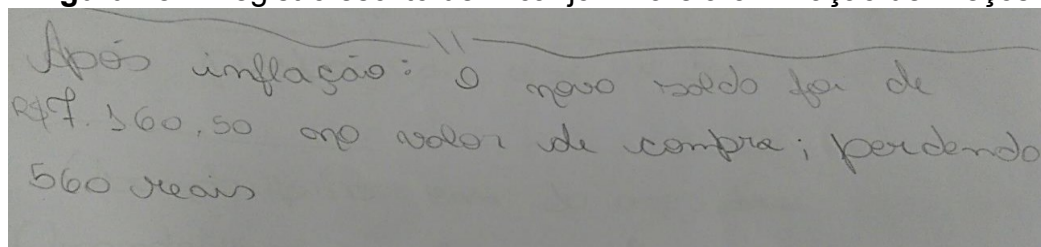 Após inflação: o novo saldo foi de
R$7.360,50 no valor de compra; perdendo
560 reais